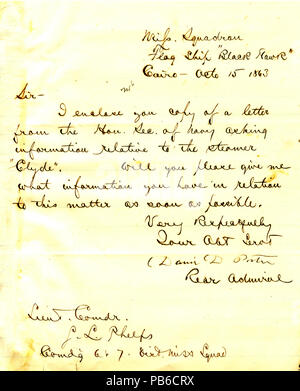 Miss. Squadron
Flag Ship "Black Hawk"
Cairo - Octo 15 1863
Sir -
I enclose you copy of a letter
from the Hon. Sec. of Navy asking
information relative to the steamer
"Clyde". Will you please give me
what information you have in relation
to this matter as soon as possible.
Very Respectfully
Your Obt Servt
(David D Porter
Rear Admiral
Lieut. Comdr.
S. L. Phelps
Comdg 6 & 7 Dist Miss Squad
alamy
Image ID: PB6CRX
www.alamy.com